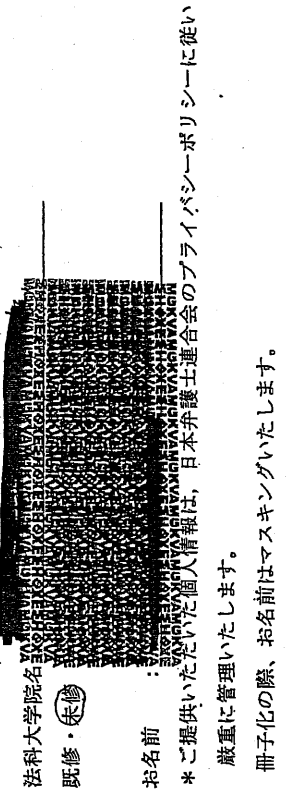 法科大学院名
既修・未修
お名前　：
＊ご提供いただいた個人情報は，日本弁護士連合会のプライバシーポリシーに従い
厳重に管理いたします。
冊子化の際、お名前はマスキングいたします。